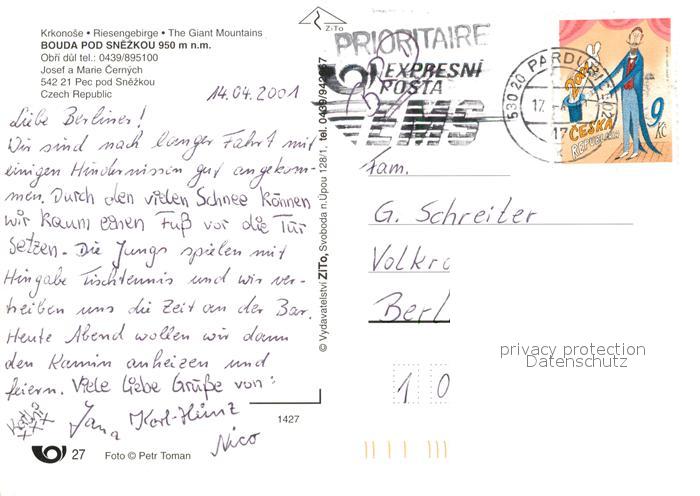 Krkonoše • Riesengebirge • The Giant Mountains
BOUDA POD SNĚŽKOU 950 m n.m.
Obří důl tel.: 0439/895100
Josef a Marie Černých
542 21 Pec pod Sněžkou
Czech Republic
14.04.2001
Liebe Berliner!
Wir sind nach langer Fahrt mit
einigen Hindernissen gut angekom-
men. Durch den vielen Schnee können
wir kaum einen Fuß vor die Tür
setzen. Die Jungs spielen mit
Hingabe Tischtennis und wir ver-
treiben uns die Zeit an der Bar.
Heute Abend wollen wir dann
den Kamin anheizen und
feiern. Viele liebe Grüße von:
Jana Karl-Heinz
Nico
27 Foto © Petr Toman
1427
© Vydavatelství ZiTo, Svoboda n.Úpou 128/1, tel. 0439/949267
ZiTo
PRIORITAIRE
EXPRESNÍ
POŠTA
EMS
530 20 PARDUBICE 02
2001
ČESKÁ
REPUBLIKA
9
Kč
Fam.
G. Schreiter
Volkra
Berl
1 0
privacy protection
Datenschutz